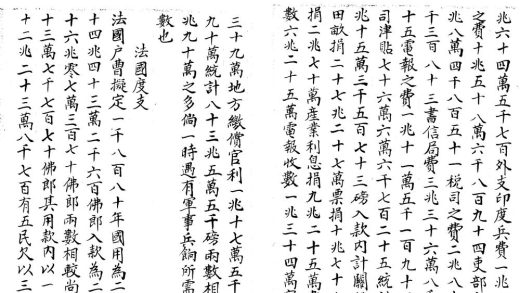 兆六十四萬五千七百外支印度兵費一兆
之費十兆五十八萬六千八百九十四吏部
兆八萬四千八百五十一稅司之費二兆八十
千三百八十三書信局費三兆三十六萬八千
十五電報之費一兆十一萬五千一百九十
司津貼七十六萬六萬六千七百二十五統計
兆十五萬三千五百七十三磅入款內計關
田畝捐二十七兆二十七萬票捐十兆七十
捐二兆七十萬產業利息捐九兆二十五萬
數六兆二十五萬電報收數一兆三十四萬
三十九萬地方繳償官利一兆十七萬五千
九十萬統計八十三兆五萬五千磅兩數相
兆九十萬之多倘一時遇有軍事兵餉所需
數也
法國度支
法國戶曹擬定一千八百八十年國用為二
十四兆四十三萬二千六百佛郎入款為二
十六兆零七萬三百七十佛郎兩數相較尚
十三萬七千七百七十佛郎其用款內以一
十二兆二十三萬八千七百有五民欠以三